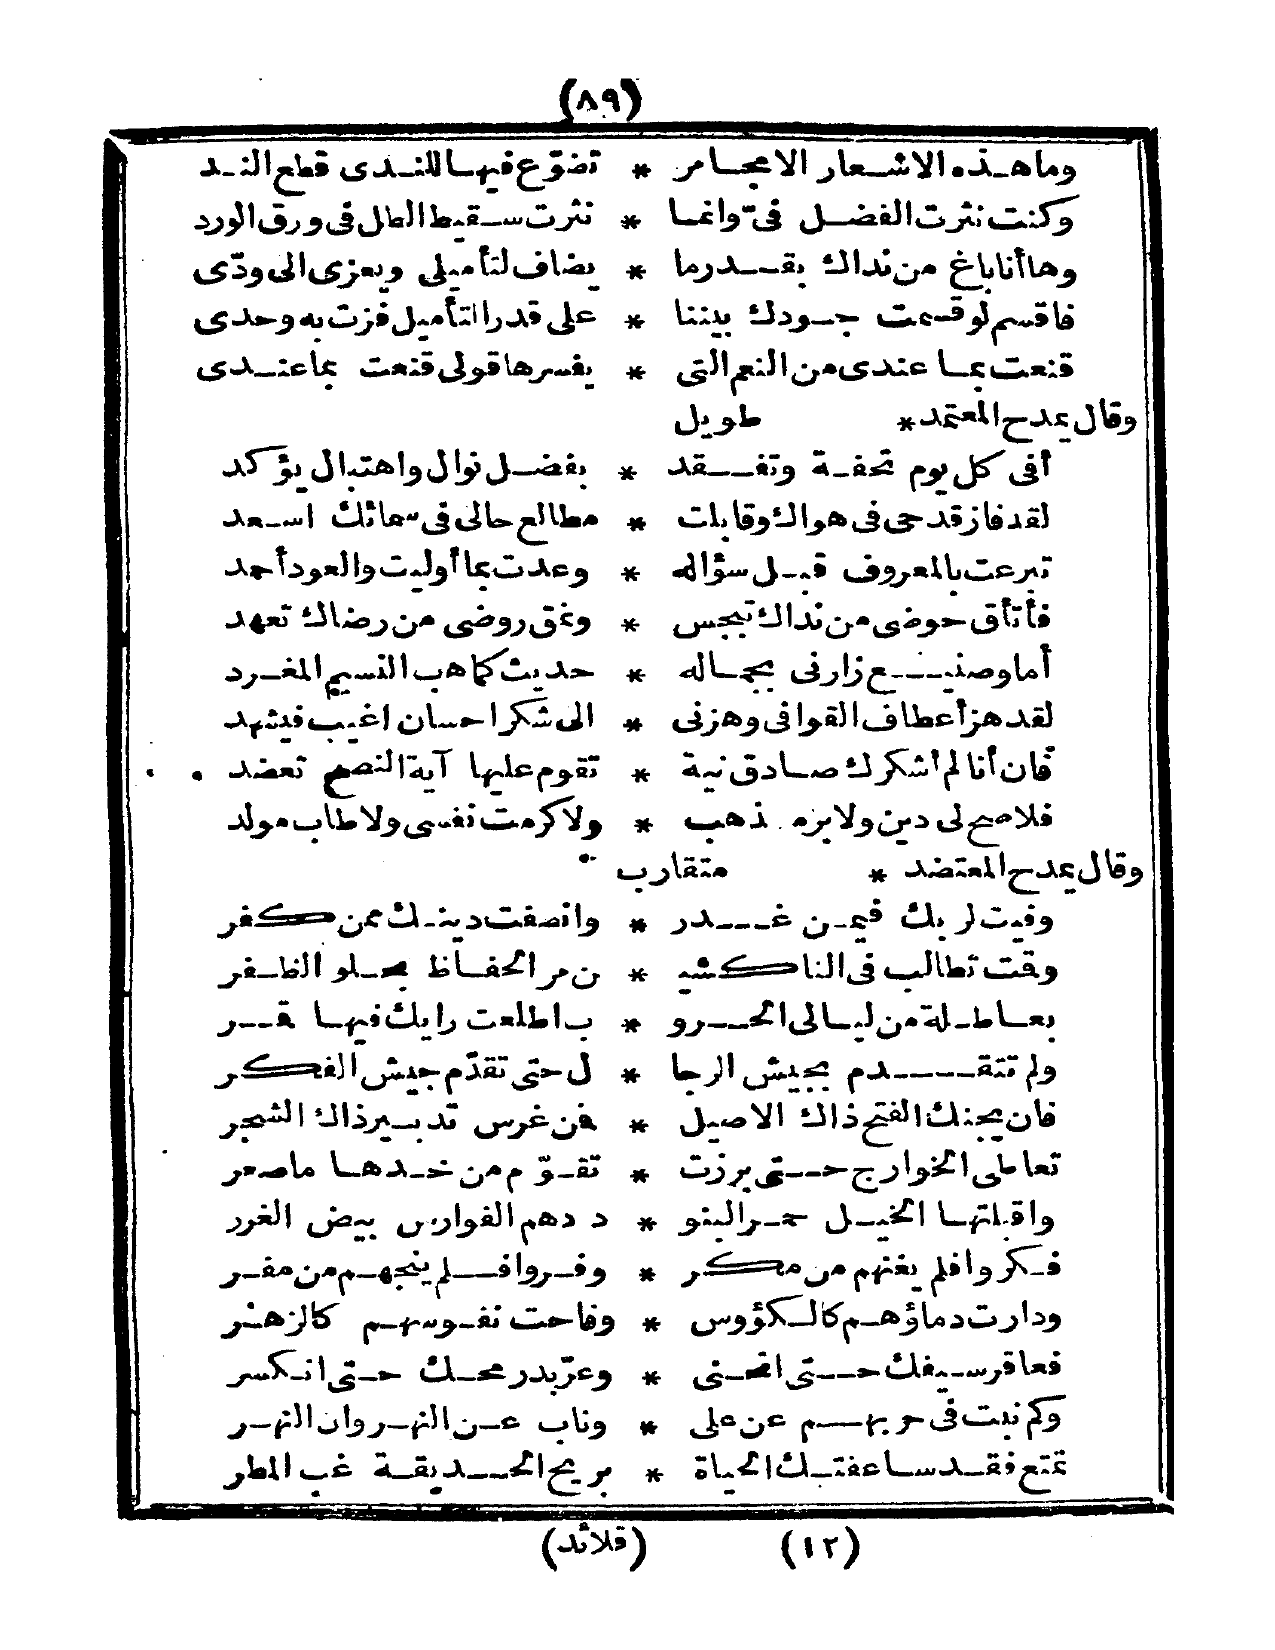 (٨٩)
وما هذه الاشعار الا مجامر * تضوّع فيها للندى قطع الند
وكنت نثرت الفضل فىّ وانما * نثرت سقيط الطل فى ورق الورد
وها أنا باغ من نداك بقدر ما * يضاف لتأميلى ويعزى الى ودّى
فاقسم لو قسمت جودك بيننا * على قدر التأميل فزت به وحدى
قنعت بما عندى من النعم التى * يفسرها قولى قنعت بما عندى
وقال يمدح المعتمد * طويل
أفى كل يوم تحفة وتفقد * بفضل نوال واهتبال يؤكد
لقد فاز قدحى فى هواك وقابلت * مطالع حالى فى سمائك اسعد
تبرعت بالمعروف قبل سؤاله * وعدت بما أوليت والعود أحمد
فأتأق حوضى من نداك تبجس * ونمق روضى من رضاك تعهد
أما وصنيع زارنى بجماله * حديث كما هب النسيم المغرد
لقد هز أعطاف القوافى وهزنى * الى شكر احسان اغيب فيشهد
فان أنا لم أشكرك صادق نية * تقوم عليها آية النصح تعضد
فلا صح لى دين ولا بر مذهب * ولا كرمت نفسى ولا طاب مولد
وقال يمدح المعتضد * متقارب
وفيت لربك فيمن غدر * وانصفت دينك ممن كفر
وقت تطالب فى الناكثيـ * ن مر الحفاظ بحلو الظفر
بعاطلة من ليالى الحرو * ب اطلعت رايك فيها قمر
ولم تتقدم بجيش الرجا * ل حتى تقدّم جيش الفكر
فان يجنك الفتح ذاك الاصيل * فمن غرس تدبير ذاك الشجر
تعاطى الخوارج حتى برزت * تقوّم من خدها ما صعر
واقبلتها الخيل حمر البنو * د دهم الفوارس بيض الغرر
فكروا فلم يغنهم من مكر * وفروا فلم ينجهم من مفر
ودارت دماؤهم كالكؤوس * وفاحت نفوسهم كالزهر
فعاقر سيفك حتى انحنى * وعربد رمحك حتى انكسر
وكم نبت فى حربهم عن على * وناب عن النهروان النهر
تمتع فقد ساعفتك الحياة * بريح الحديقة غب المطر
(١٢) (قلائد)